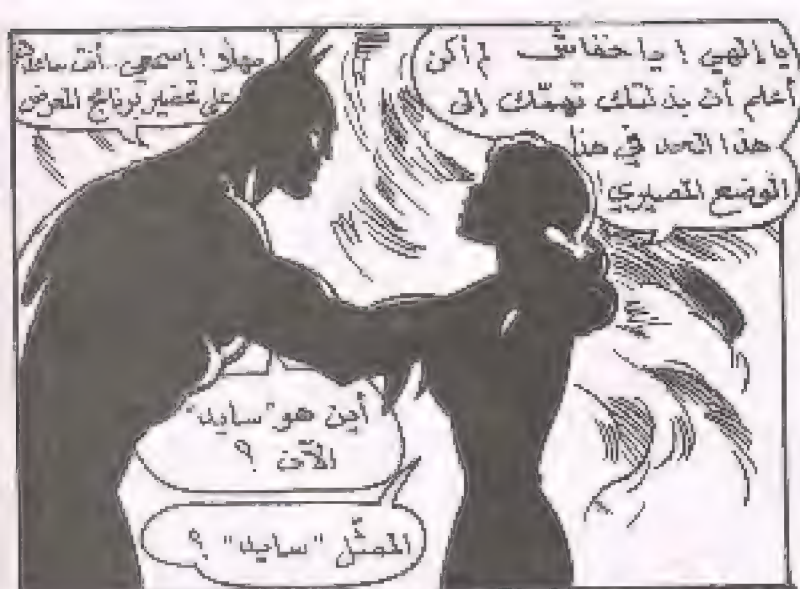 يا إلهي ! يا خفاش لم أكن
أعلم أن بذلتك تهمّك إلى
هذا الحد في هذا
الوضع المصيري !
مهلاً ! اسمعي .. أنت ساعدت
على تحضير برنامج العرض
أين هو "سايد"
الآن ؟
الممثّل "سايد" ؟